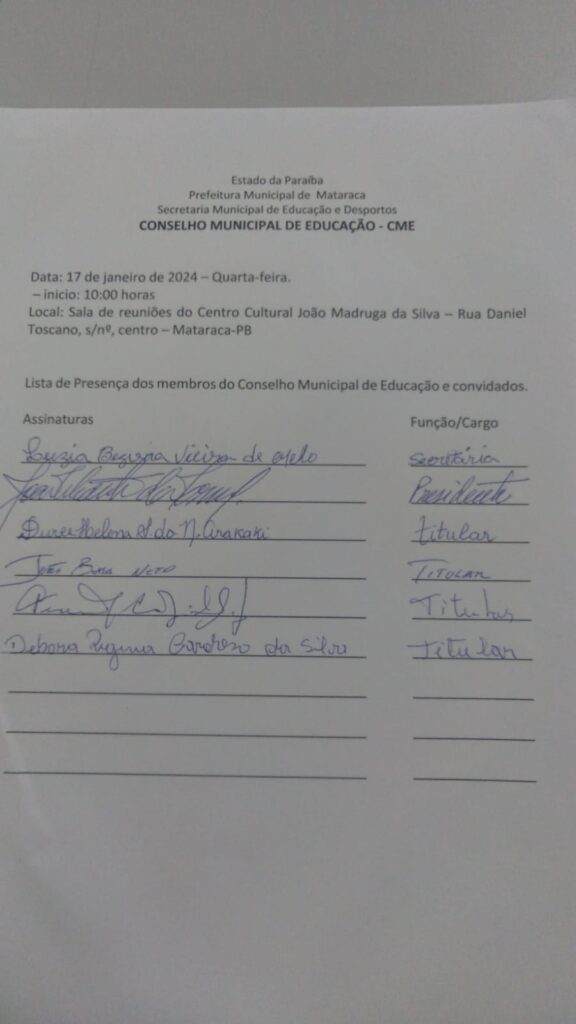 Estado da Paraíba
Prefeitura Municipal de Mataraca
Secretaria Municipal de Educação e Desportos
CONSELHO MUNICIPAL DE EDUCAÇÃO - CME
Data: 17 de janeiro de 2024 – Quarta-feira.
– inicio: 10:00 horas
Local: Sala de reuniões do Centro Cultural João Madruga da Silva – Rua Daniel
Toscano, s/nº, centro – Mataraca-PB
Lista de Presença dos membros do Conselho Municipal de Educação e convidados.
Assinaturas Função/Cargo
Luzia Bezerra Vieira de Melo Secretária
Presidente
Dulce Helena do N. Arakaki titular
João Neto TITULAR
Titular
Debora Regina Cardoso da Silva Titular